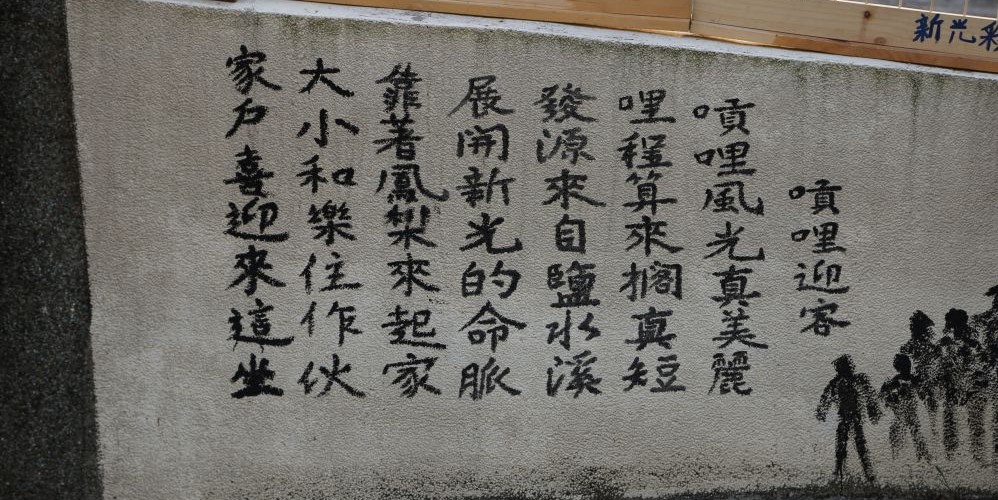 新光彩
嗊哩迎客
嗊哩風光真美麗
哩程算來擱真短
發源來自鹽水溪
展開新光的命脈
靠著鳳梨來起家
大小和樂住作伙
家戶喜迎來這坐